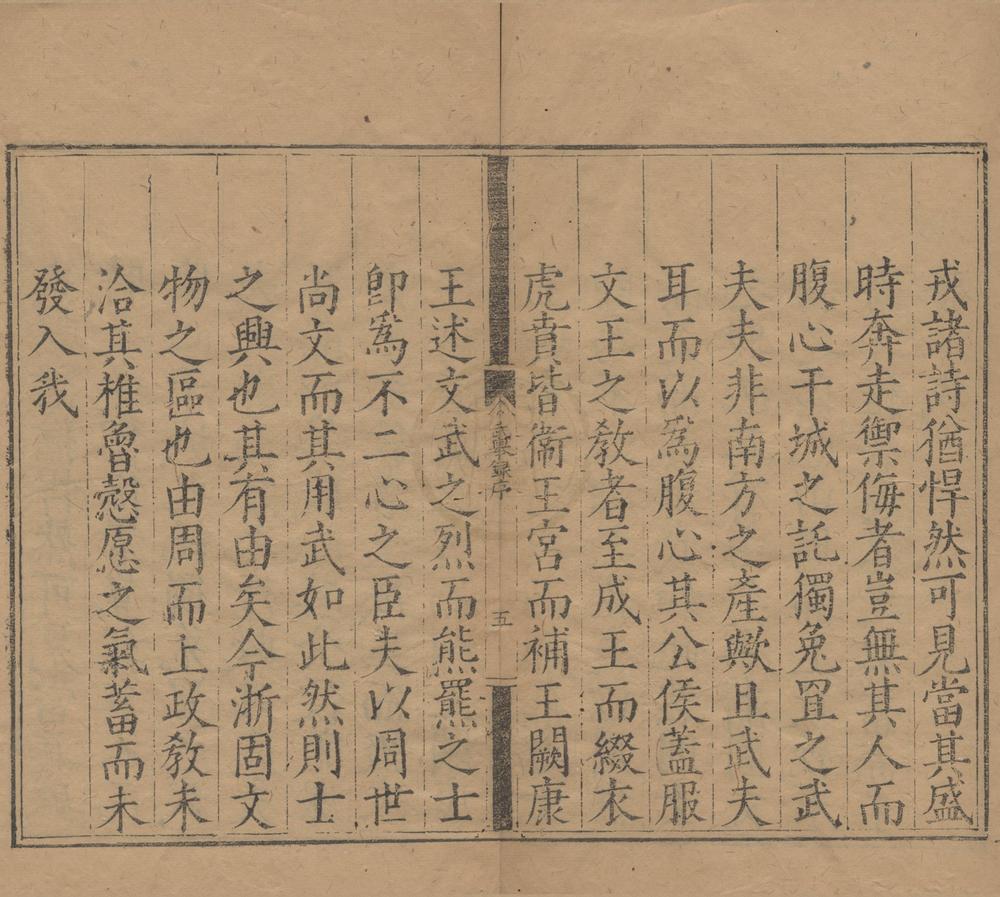 戎諸詩猶悍然可見當其盛
時奔走禦侮者豈無其人而
腹心干城之託獨兔罝之武
夫夫非南方之產歟且武夫
耳而以爲腹心其公侯蓋服
文王之教者至成王而綴衣
虎賁皆衞王宮而補王闕康
五
王述文武之烈而熊羆之士
卽爲不二心之臣夫以周世
尚文而其用武如此然則士
之興也其有由矣今浙固文
物之區也由周而上政教未
洽其椎魯愨愿之氣蓄而未
發入我